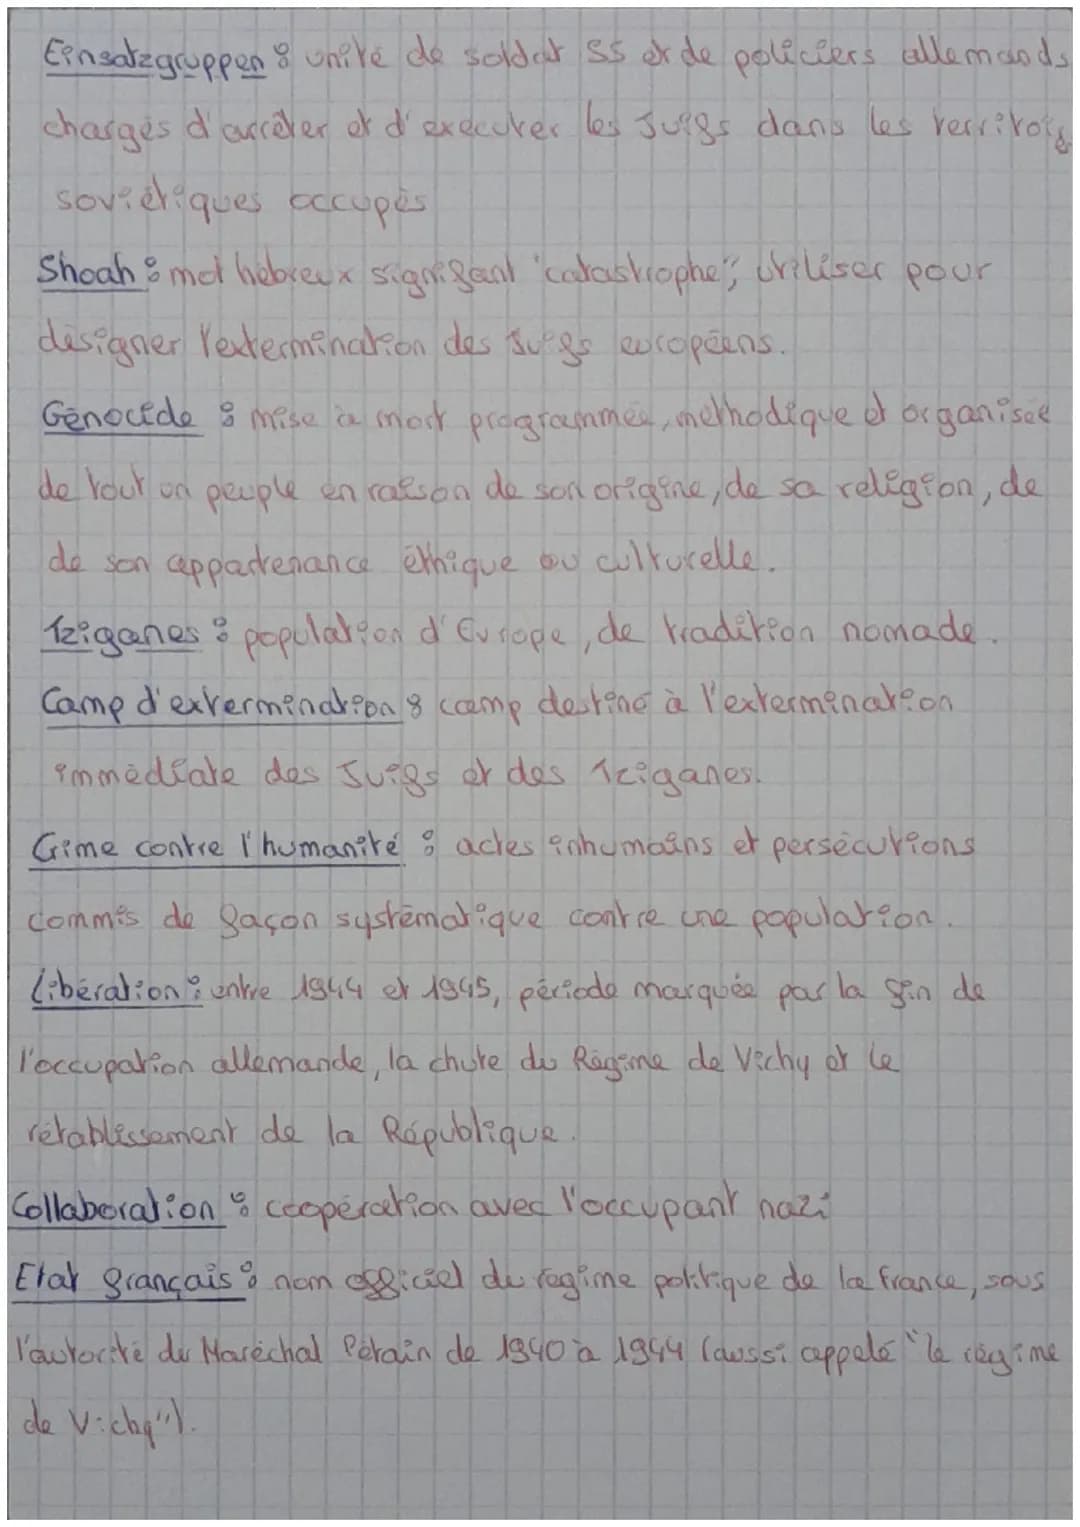 Einsatzgruppen : unité de soldat SS et de policiers allemands
chargés d'arrêter et d'executer les Juifs dans les territoires
soviétiques occupés
Shoah : mot hébreux signifant "catastrophe", utiliser pour
désigner l'extermination des Juifs européens.
Génocide : mise à mort programmée, méthodique et organisée
de tout un peuple en raison de son origine, de sa religion, de
de son appartenance éthique ou culturelle.
Tziganes : population d'Europe, de tradition nomade.
Camp d'extermination : camp destiné à l'extermination
immédiate des Juifs et des Tziganes.
Crime contre l'humanité : actes inhumains et persécutions
commis de façon systématique contre une population.
Libération : entre 1944 et 1945, période marquée par la fin de
l'occupation allemande, la chute du Régime de Vichy et le
rétablissement de la République.
Collaboration : coopération avec l'occupant nazi
Etat français : nom officiel du régime politique de la France, sous
l'autorité du Maréchal Pétain de 1940 à 1944 (aussi appelé "le régime
de Vichy").